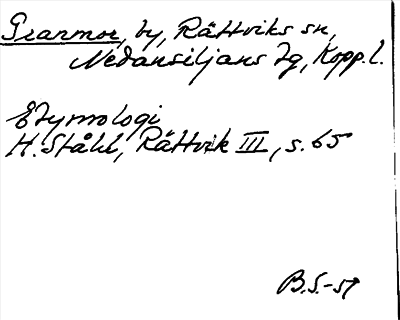 Granmor, by, Rättviks sn,
Nedansiljans tg, Kopp. l.
Etymologi
H. Ståhl, Rättvik III, s. 65
B.S.-57